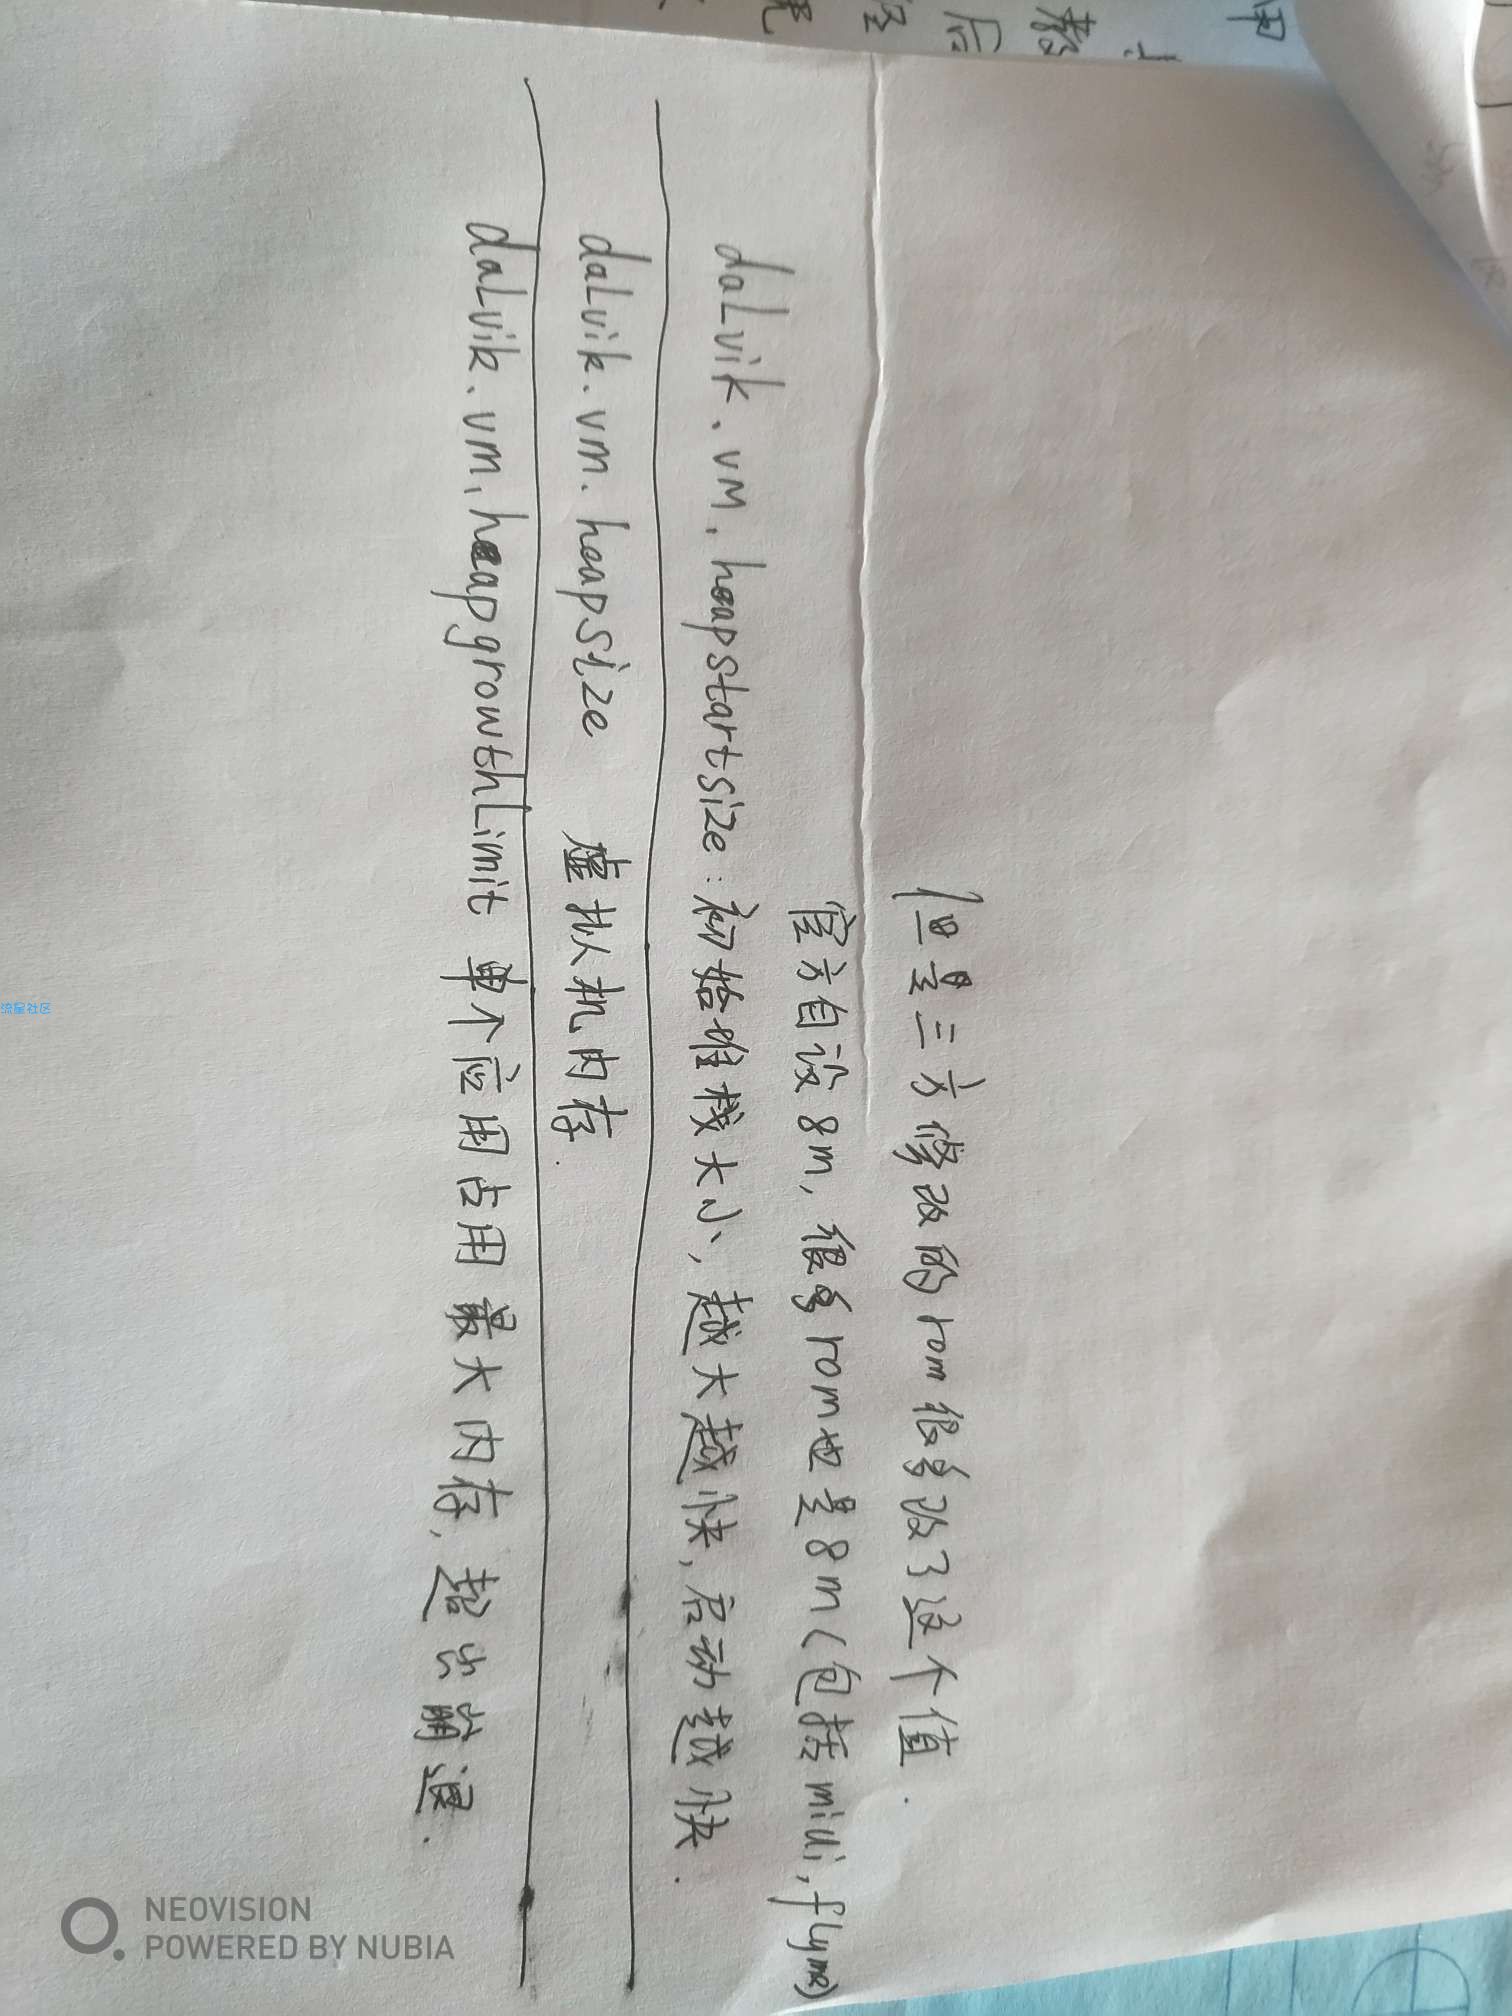 但是三方修改的rom很多改了这个值.
官方自设8m, 很多rom也是8m(包括miui, flyme)
daLvik.vm.heapstartsize:初始堆栈大小, 越大越快, 启动越快.
daLvik.vm.heapsize 虚拟机内存.
daLvik.vm.heapgrowthLimit 单个应用占用最大内存, 超出崩退.
流星社区
NEOVISION
POWERED BY NUBIA